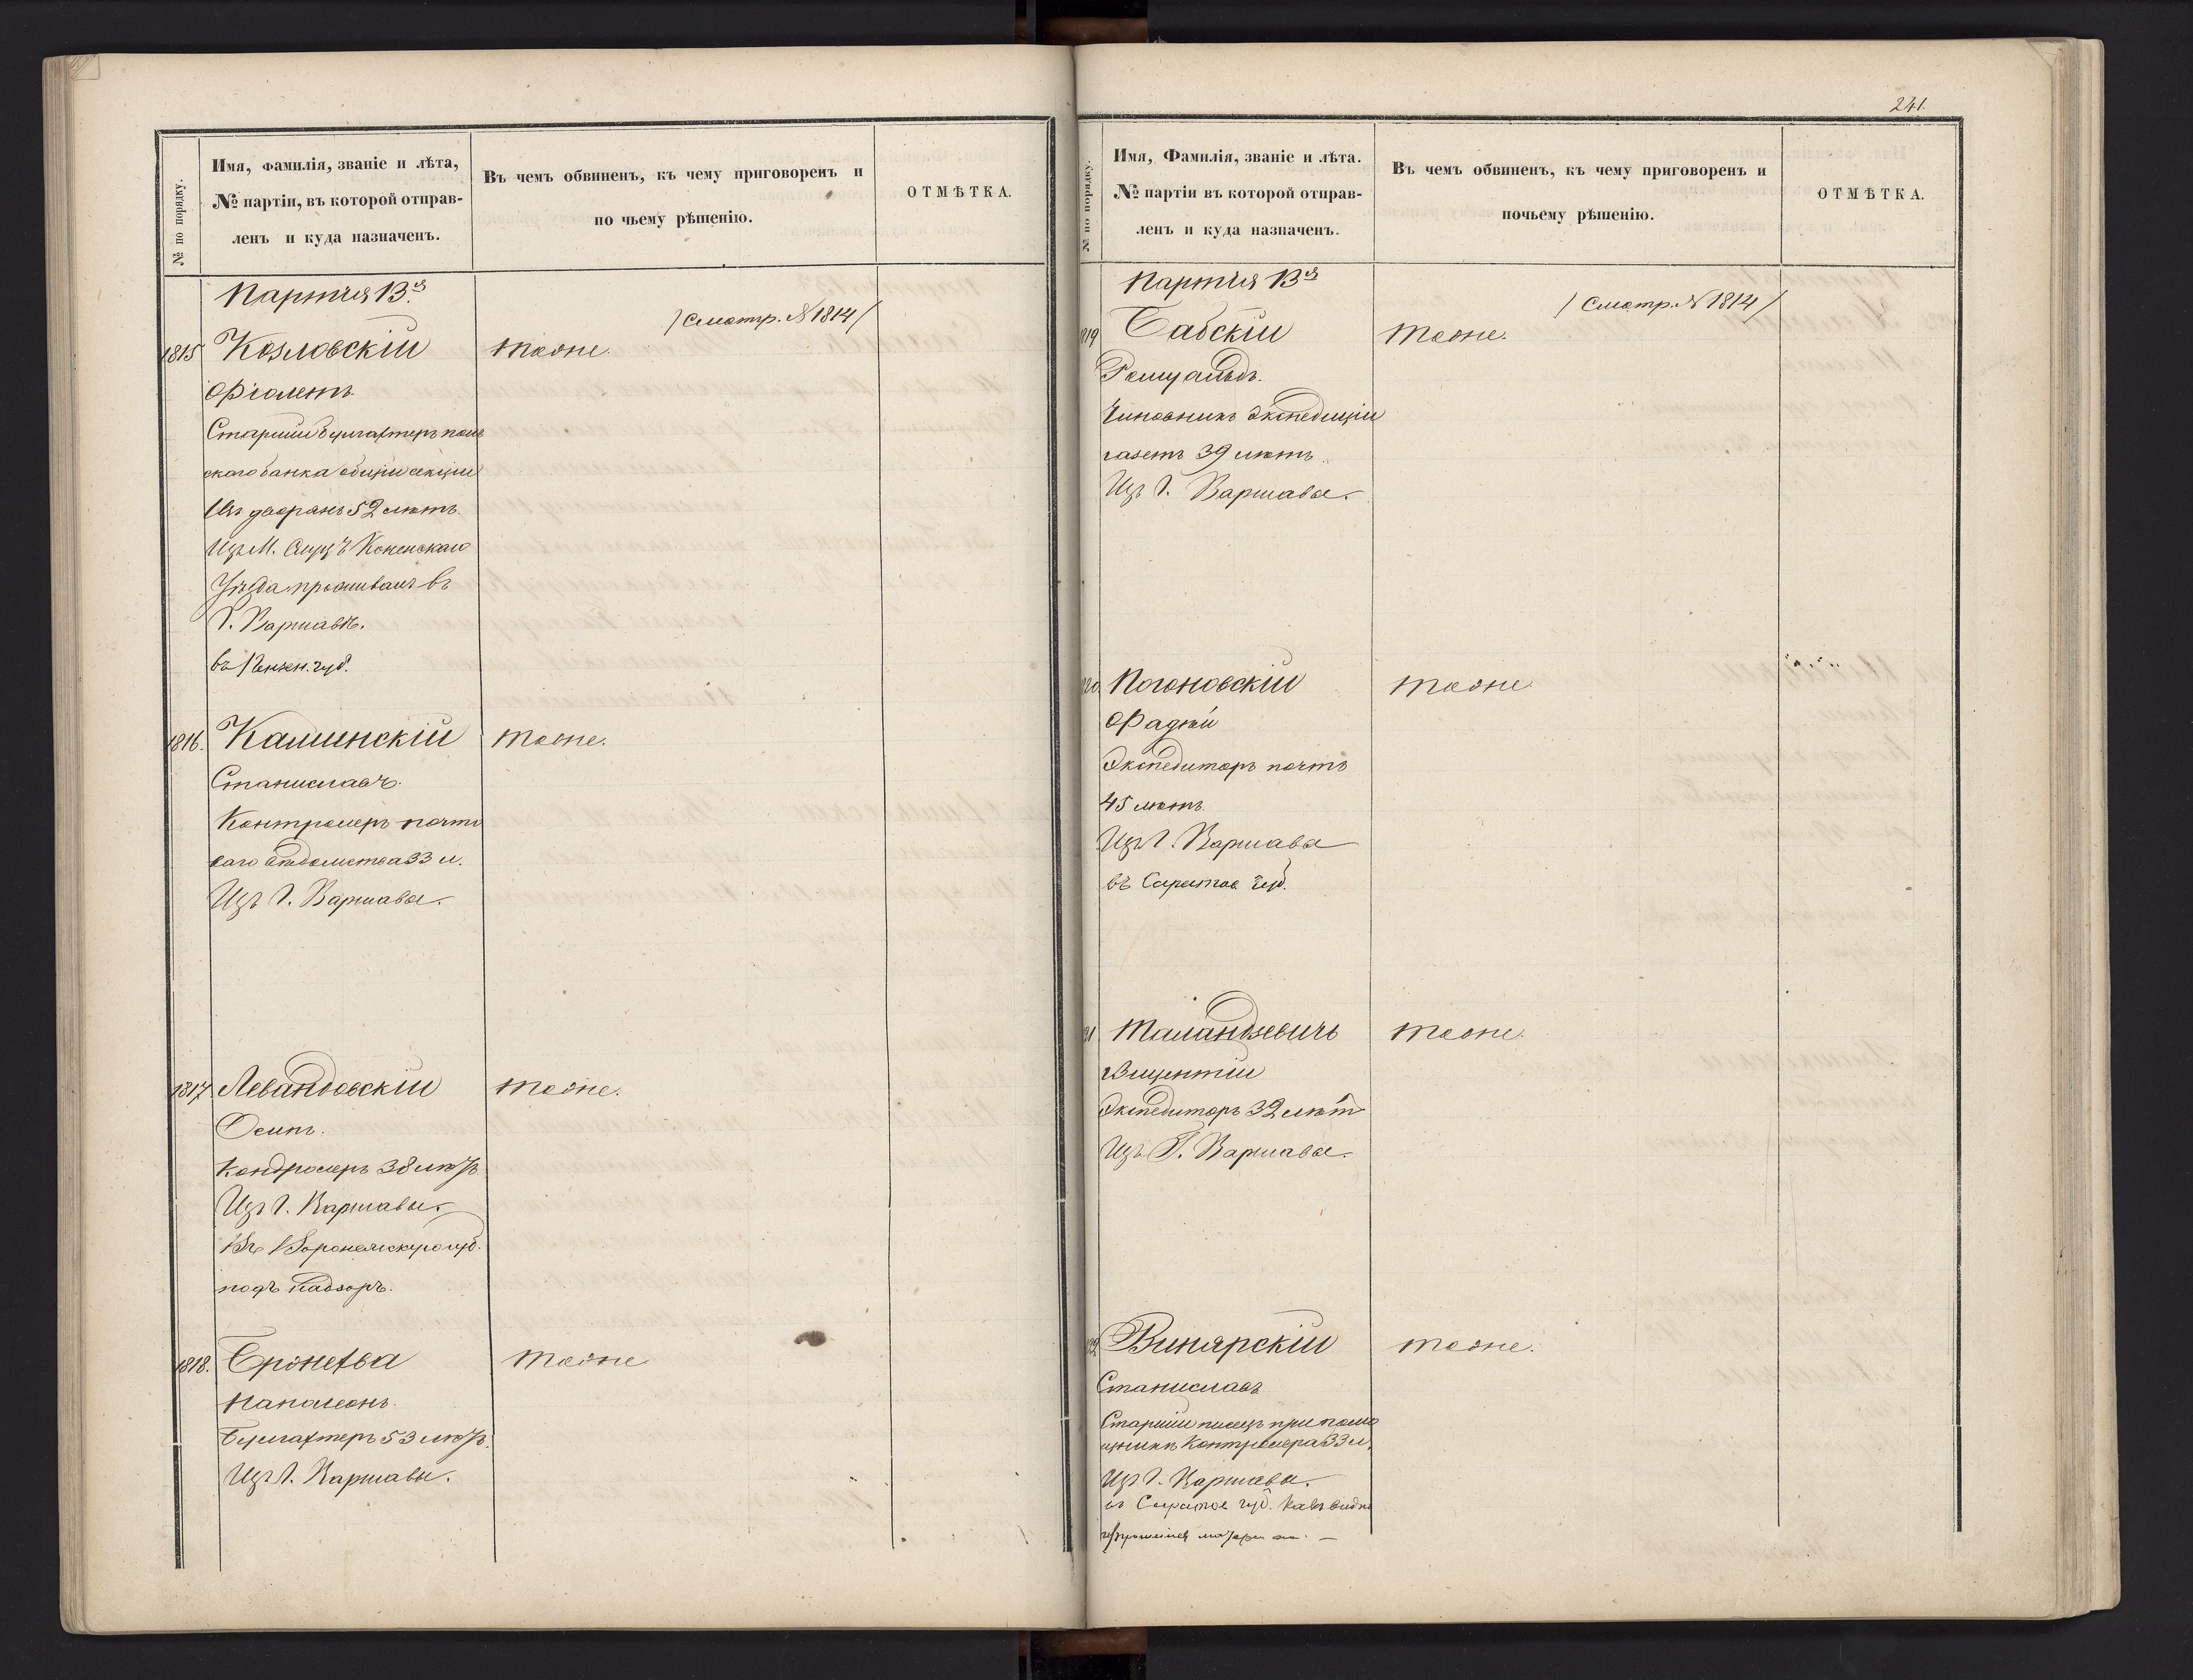 № по порядку.
Имя, фамилія, званіе и лѣта,
№ партіи, въ которой отправ-
ленъ и куда назначенъ.
Въ чемъ обвиненъ, къ чему приговоренъ и
по чьему рѣшенію.
ОТМѢТКА.
Партія 13я
/Смотр. N 1814/
1815 Козловскій тоже.
Фіолетъ
Старшій бухгалтеръ поль
скаго банка общей секціи
Изъ дворянъ 52 лѣтъ.
Изъ М. Конскаго
Уѣзда проживалъ въ
Г. Варшавѣ.
въ Пензен. губ.
1816. Калинскій тоже.
Станиславъ.
Контролеръ почто
ваго вѣдомства 33 л.
Изъ Г. Варшавы.
1817 Левандовскій тоже.
Осипъ.
Кондролеръ 38 лѣтъ
Изъ Г. Варшавы.
Въ Воронежскую губ.
подъ надзоръ.
1818. Бронетва тоже
Наполеонъ.
Бухгалтеръ 53 лѣтъ.
Изъ Г. Варшавы.
241.
№ по порядку.
Имя, Фамилія, званіе и лѣта.
№ партіи въ которой отправ-
ленъ и куда назначенъ.
Въ чемъ обвиненъ, къ чему приговоренъ и
почьему рѣшенію.
ОТМѢТКА.
Партія 13я
/Смотр. N 1814/
Бабскій тоже.
Ромуальдъ.
Чиновникъ экспедиціи
газетъ 39 лѣтъ.
Изъ Г. Варшавы.
Погоновскій тоже
Фадѣй
Экспедиторъ почтъ
45 лѣтъ.
Изъ Г. Варшавы
въ Саратов. губ.
Маландзевичъ тоже.
Вицентій
Экспедиторъ 32 лѣтъ
Изъ Г. Варшавы.
Винярскій тоже.
Станиславъ
Старшій писецъ при помо
щникѣ Контролера 33 л.
Изъ Г. Варшавы.
въ Саратов губ.